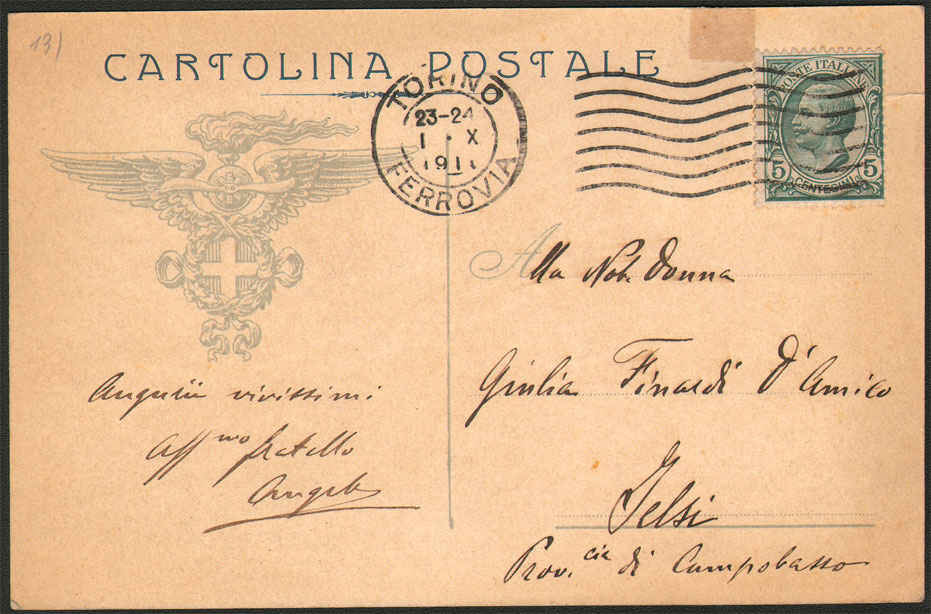 13)
CARTOLINA POSTALE
TORINO
23-24
1 · X
1911
FERROVIA
POSTE ITALIANE
5 CENTESIMI 5
Alla Nob. Donna
Giulia Finardi D'Amico
Jelsi
Prov.cia di Campobasso
Augurii vivissimi
Aff.mo fratello
Angelo